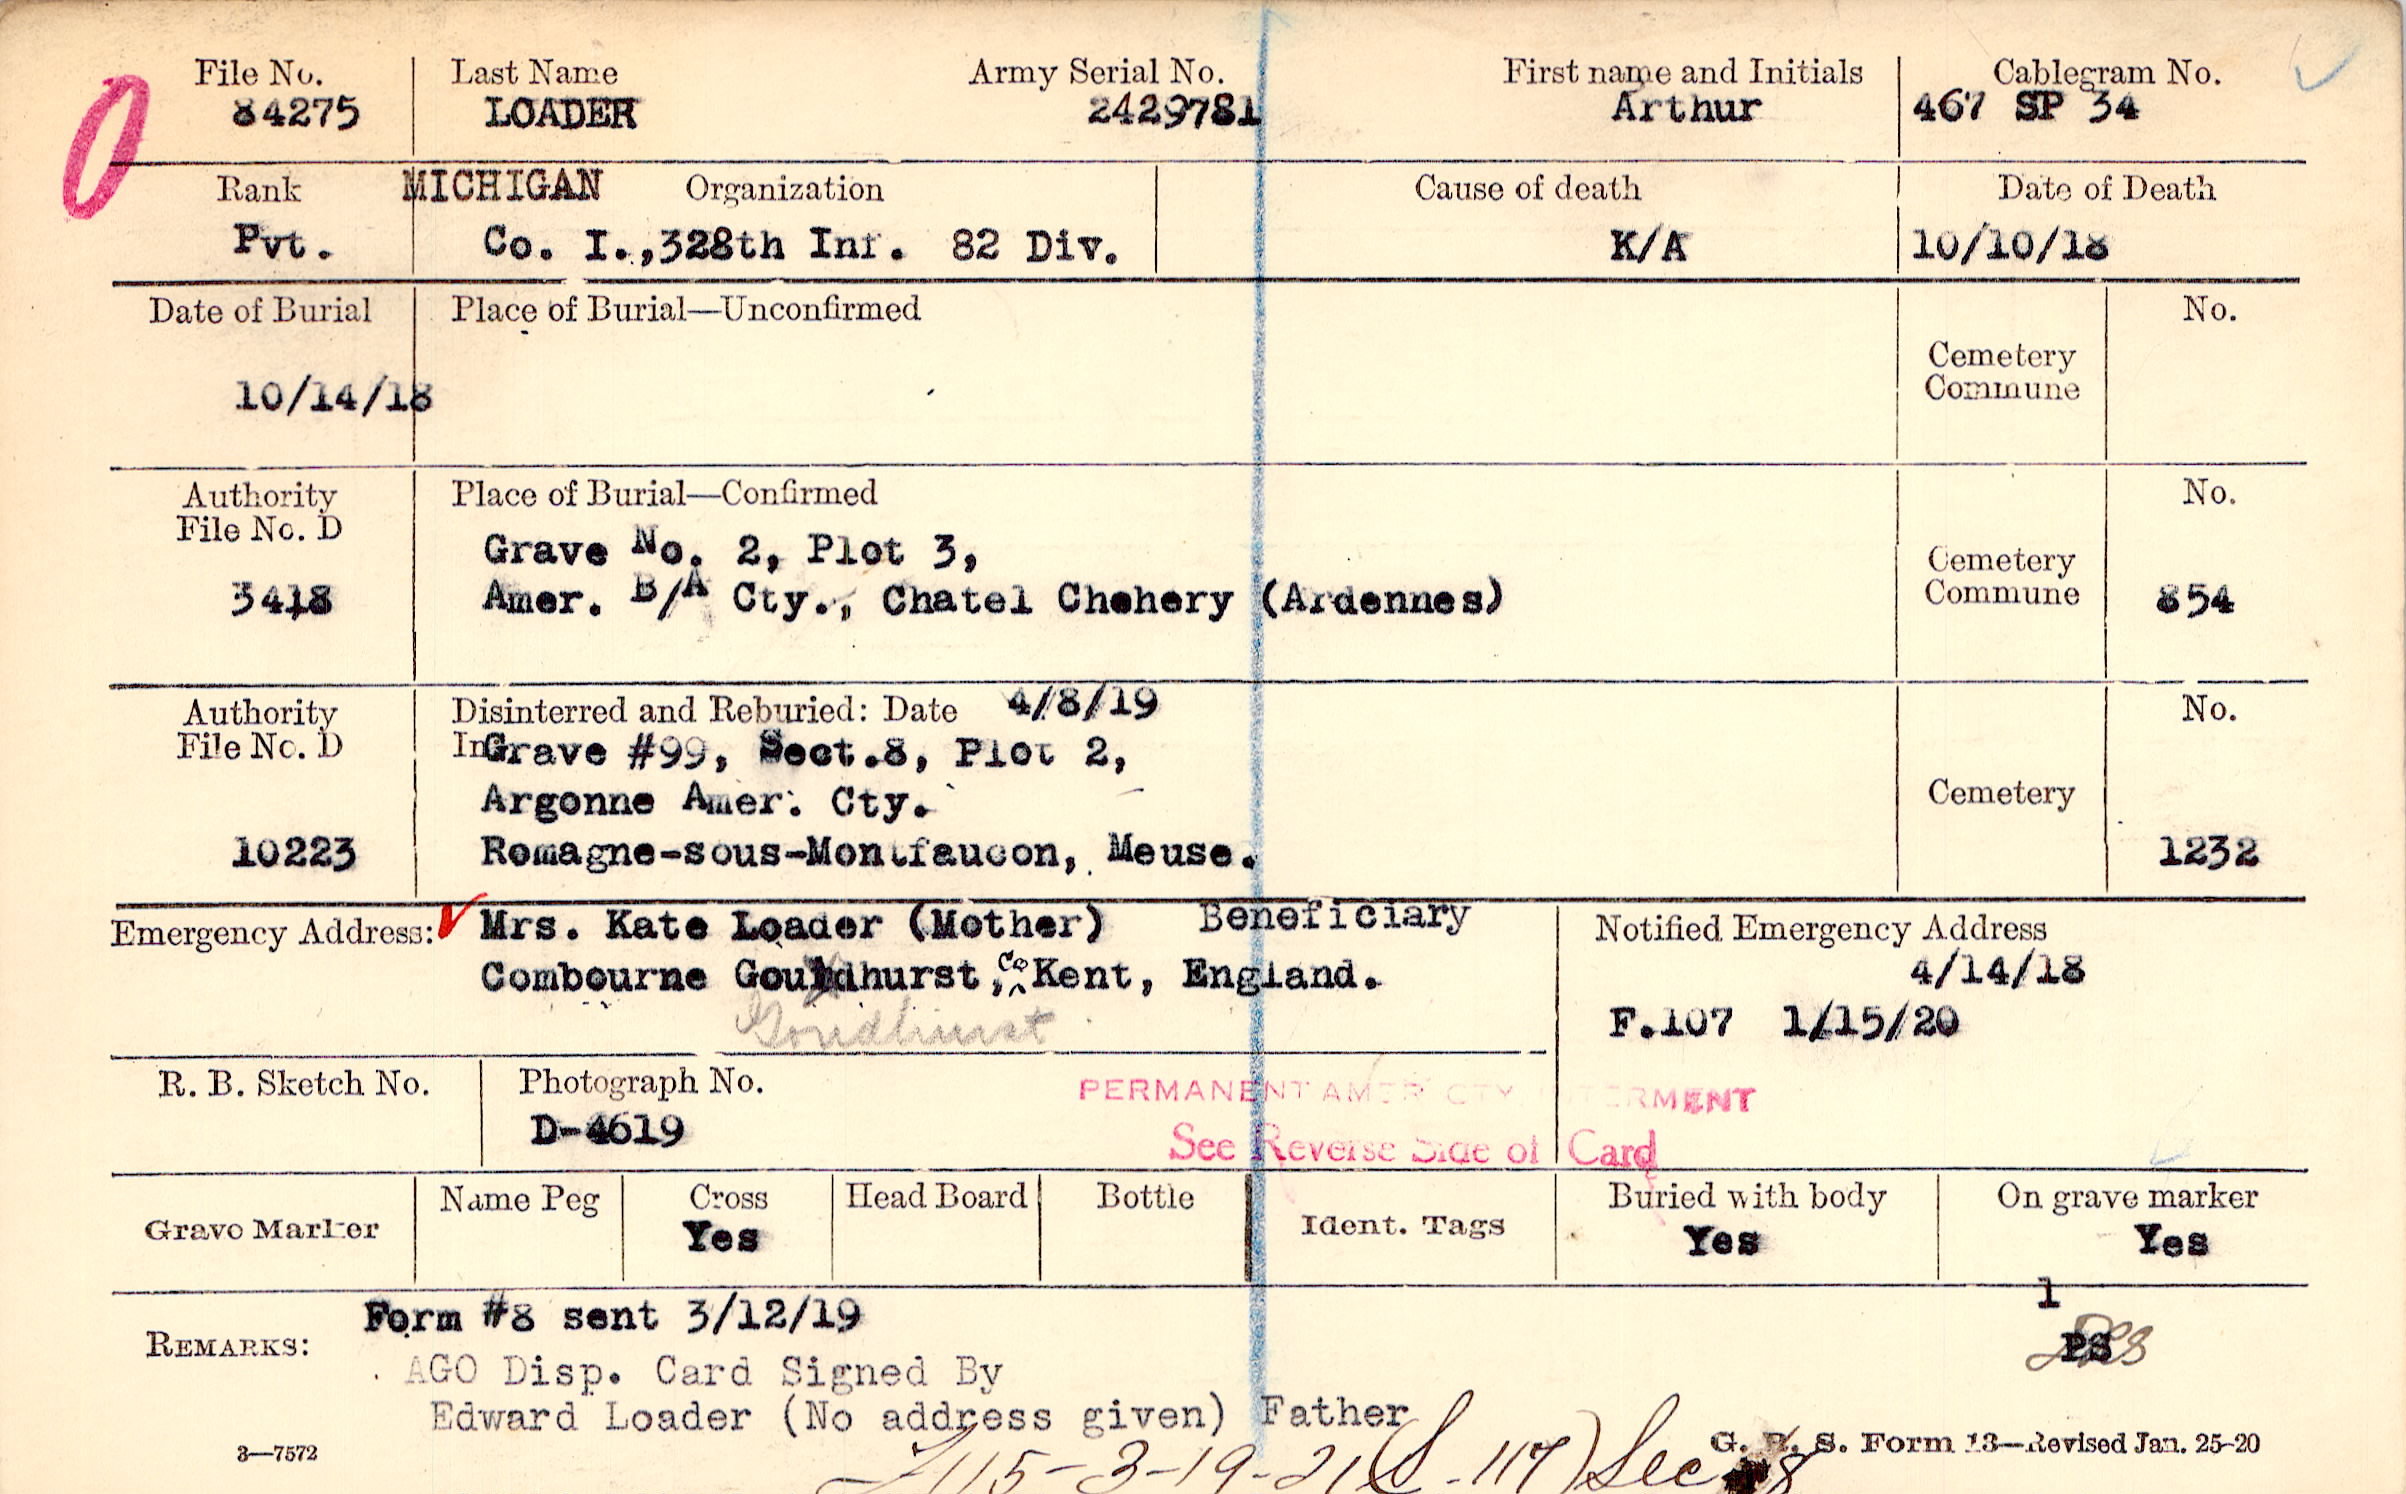 File No. Last Name Army Serial No. First name and Initials Cablegram No.
84275 LOADER 2429781 Arthur 467 SP 34
Rank MICHIGAN Organization Cause of death Date of Death
Pvt. Co. I.,328th Inf. 82 Div. K/A 10/10/18
Date of Burial Place of Burial—Unconfirmed No.
Cemetery
Commune
10/14/18
Authority Place of Burial—Confirmed No.
File No. D
Grave No. 2, Plot 3,
Cemetery
3418 Amer. B/A Cty., Chatel Chehery (Ardennes) Commune 854
Authority Disinterred and Reburied: Date 4/8/19 No.
File No. D In Grave #99, Sect.8, Plot 2,
Argonne Amer. Cty. Cemetery
10223 Romagne-sous-Montfaucon, Meuse. 1232
Emergency Address: Mrs. Kate Loader (Mother) Beneficiary Notified Emergency Address
Combourne Goudhurst, Co Kent, England. 4/14/18
Goudhurst F.107 1/15/20
R. B. Sketch No. Photograph No. PERMANENT AMER CTY INTERMENT
D-4619 See Reverse Side of Card
Name Peg Cross Head Board Bottle Buried with body On grave marker
Grave Marker Yes Ident. Tags Yes Yes
1
Form #8 sent 3/12/19
REMARKS: PS
AGO Disp. Card Signed By
Edward Loader (No address given) Father
3—7572 115-3-19-21 (S-117) Sec 8 G. R. S. Form 13—Revised Jan. 25-20